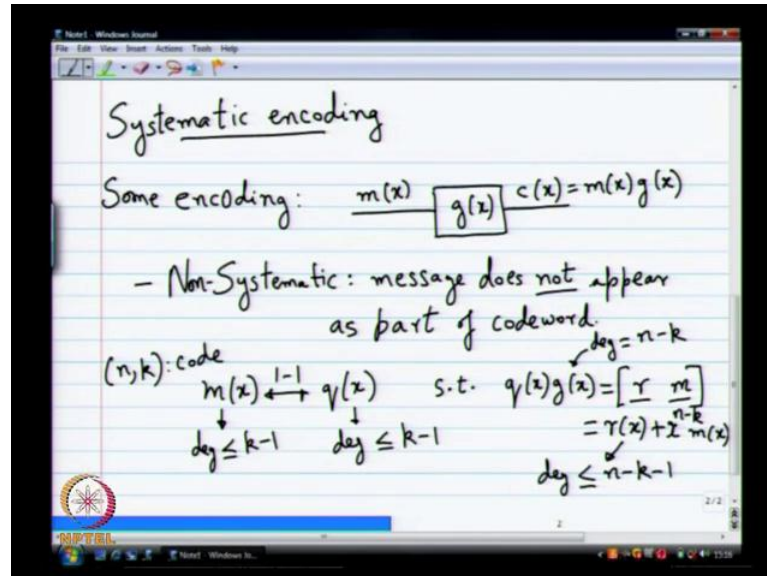 Note1 - Windows Journal
File Edit View Insert Actions Tools Help
Systematic encoding
Some encoding: m(x) g(x) c(x) = m(x) g(x)
- Non-Systematic: message does not appear
as part of codeword.
deg = n-k
(n,k): code
m(x) 1-1 q(x) s.t. q(x)g(x) = [r m]
= r(x) + x^{n-k} m(x)
deg ≤ k-1 deg ≤ k-1
deg ≤ n-k-1
2/2
2
NPTEL
Note1 - Windows Jo...
1516